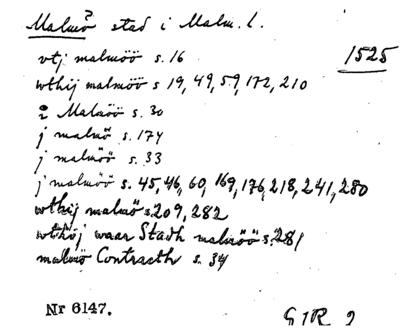 Malmö stad i Malm. l.
1525
vtj malmöö s. 16
wthij malmöö s 19, 49, 59, 172, 210
i Malmöö s. 30
j malmö s. 174
j malmöö s. 33
j malmöö s. 45, 46, 60, 169, 176, 218, 241, 280
wthij malmö s. 209, 282
wthöj waar Stadh malmöö s. 281
malmö Contracth s. 34
Nr 6147.
G1R 2